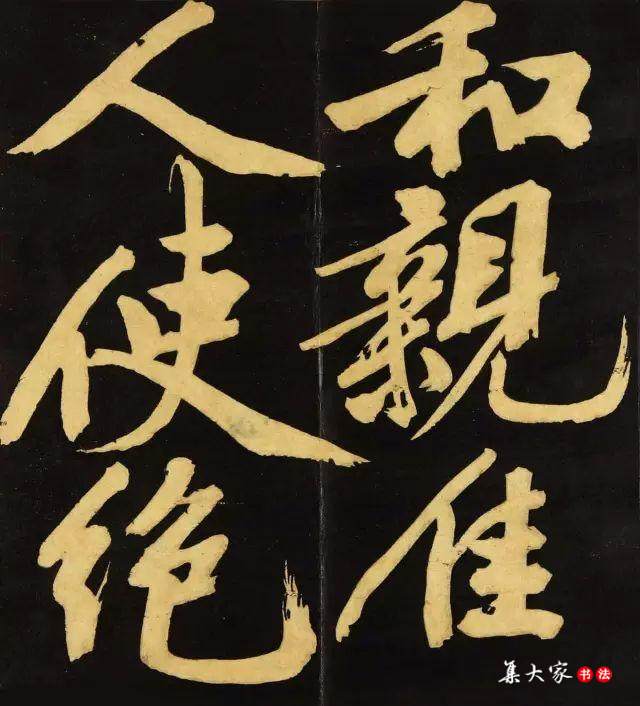 和親佳
人使绝
集大家书法